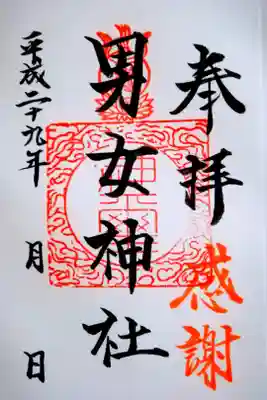 奉拝
感謝
男女神社
平成二十九年 月 日